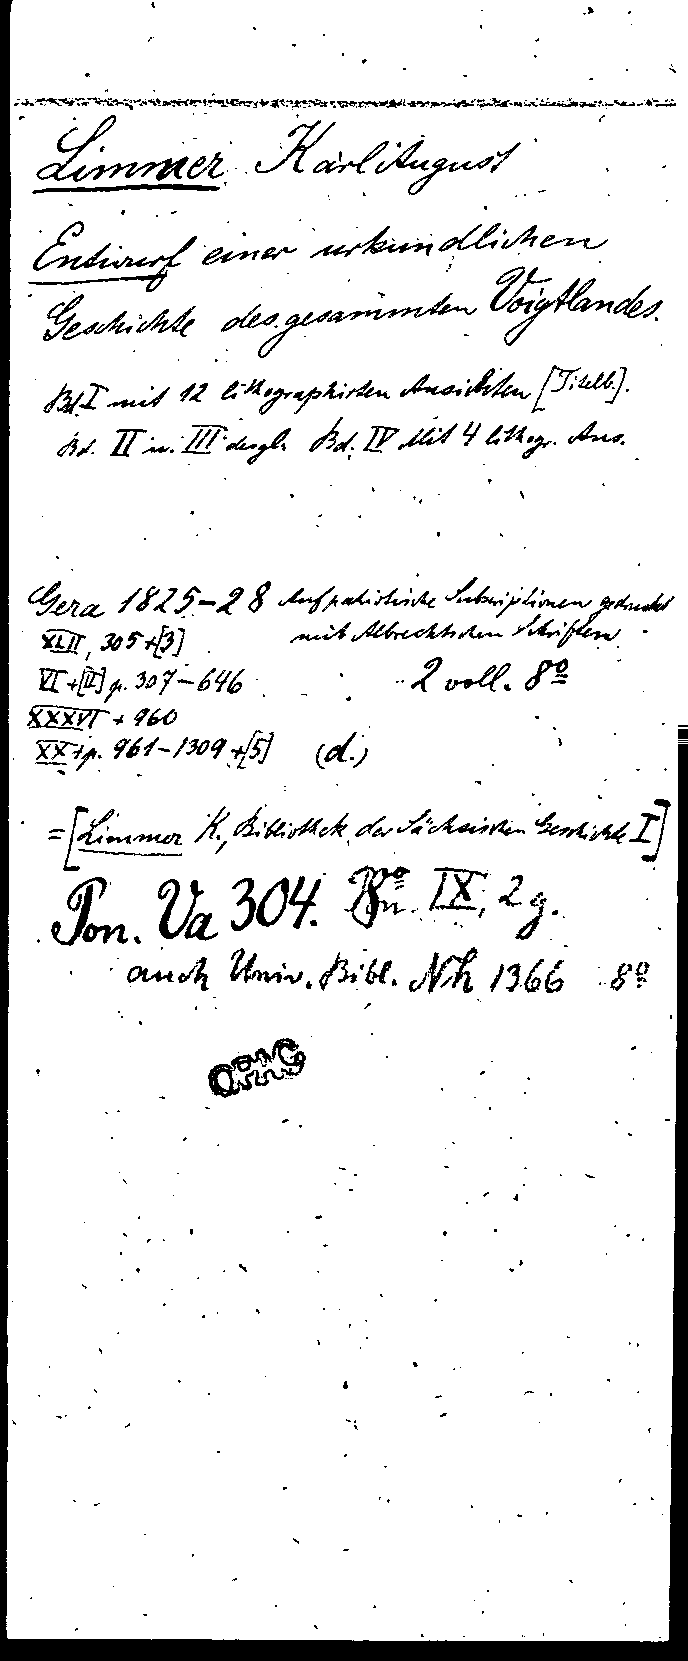 Limmer Karl August
Entwurf einer urkundlichen
Geschichte des gesammten Voigtlandes.
Bd. I mit 12 lithographirten Ansichten [Titelb.].
Bd. II u. III desgl. Bd. IV Mit 4 lithogr. Ans.
Gera 1825-28 Auf patriotische Subscriptionen gedruckt
XLII, 305+[3] mit Albrechtschen Schriften
VI+[II] p. 307-646 2 voll. 8º
XXXVI + 960
XX+p. 961-1309+[5] (d.)
=[Limmer K., Bibliothek der Sächsischen Geschichte I]
Pon. Va 304. IX, 2 g.
auch Univ. Bibl. Nh 1366 8º